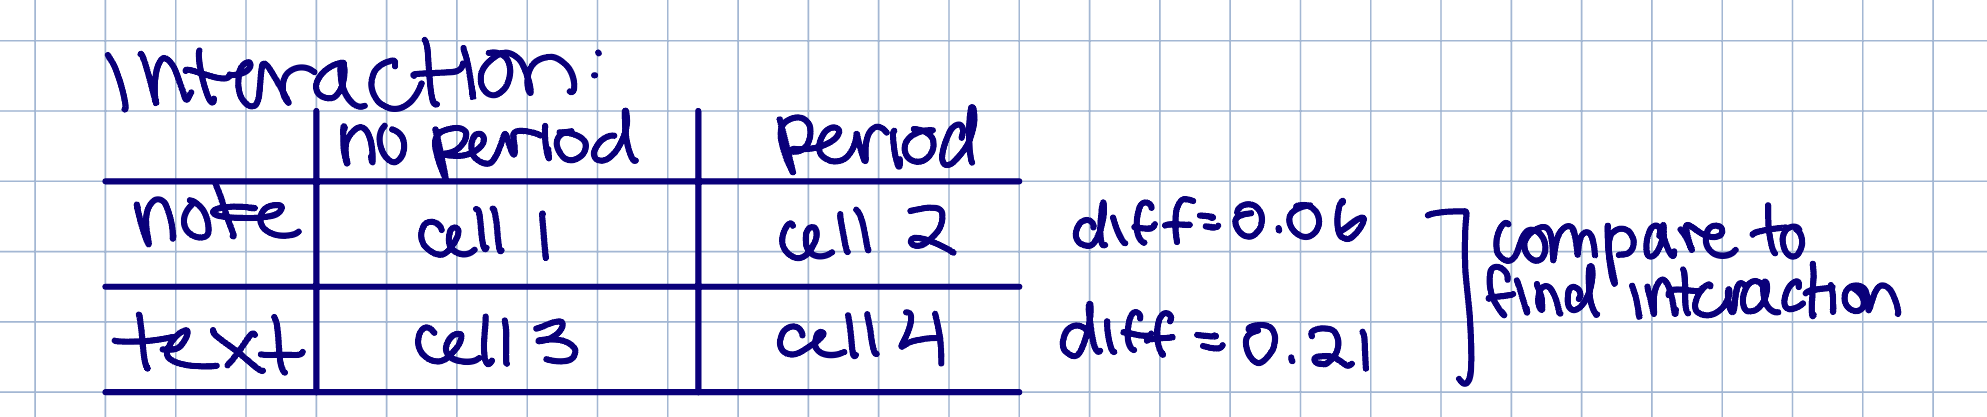 Interaction:
no period period
note cell 1 cell 2 diff=0.06 compare to
find interaction
text cell 3 cell 4 diff = 0.21